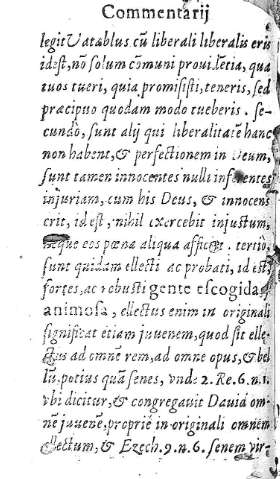 Commentarij
legit Uatablus cũ liberali liberalis eris
idest, nõ solum cõmuni prouidẽtia, qua
tuos tueri, quia promisisti, teneris, sed
præcipuo quodam modo tueberis . se-
cundo, sunt alij qui liberalitatẽ hanc
non habent, & perfectionem in Deum,
sunt tamen innocentes nulli inferentes
injuriam, cum his Deus, & innocens
erit, idest, nihil exercebit injustum,
neque eos pœna aliqua afficiet . tertio,
sunt quidam ellecti ac probati, id est,
fortes, ac robusti gente escogida
animosa, ellectus enim in originali
significat etiam juuenem, quod sit elle-
ctus ad omnẽ rem, ad omne opus, & bel
lũ, potius quã senes, vnde 2. Re. 6. n. 1.
vbi dicitur, & congregauit Dauid om-
nẽ juuenẽ, proprie in originali omnem
ellectum, & Ezech. 9. n. 6. senem vir-